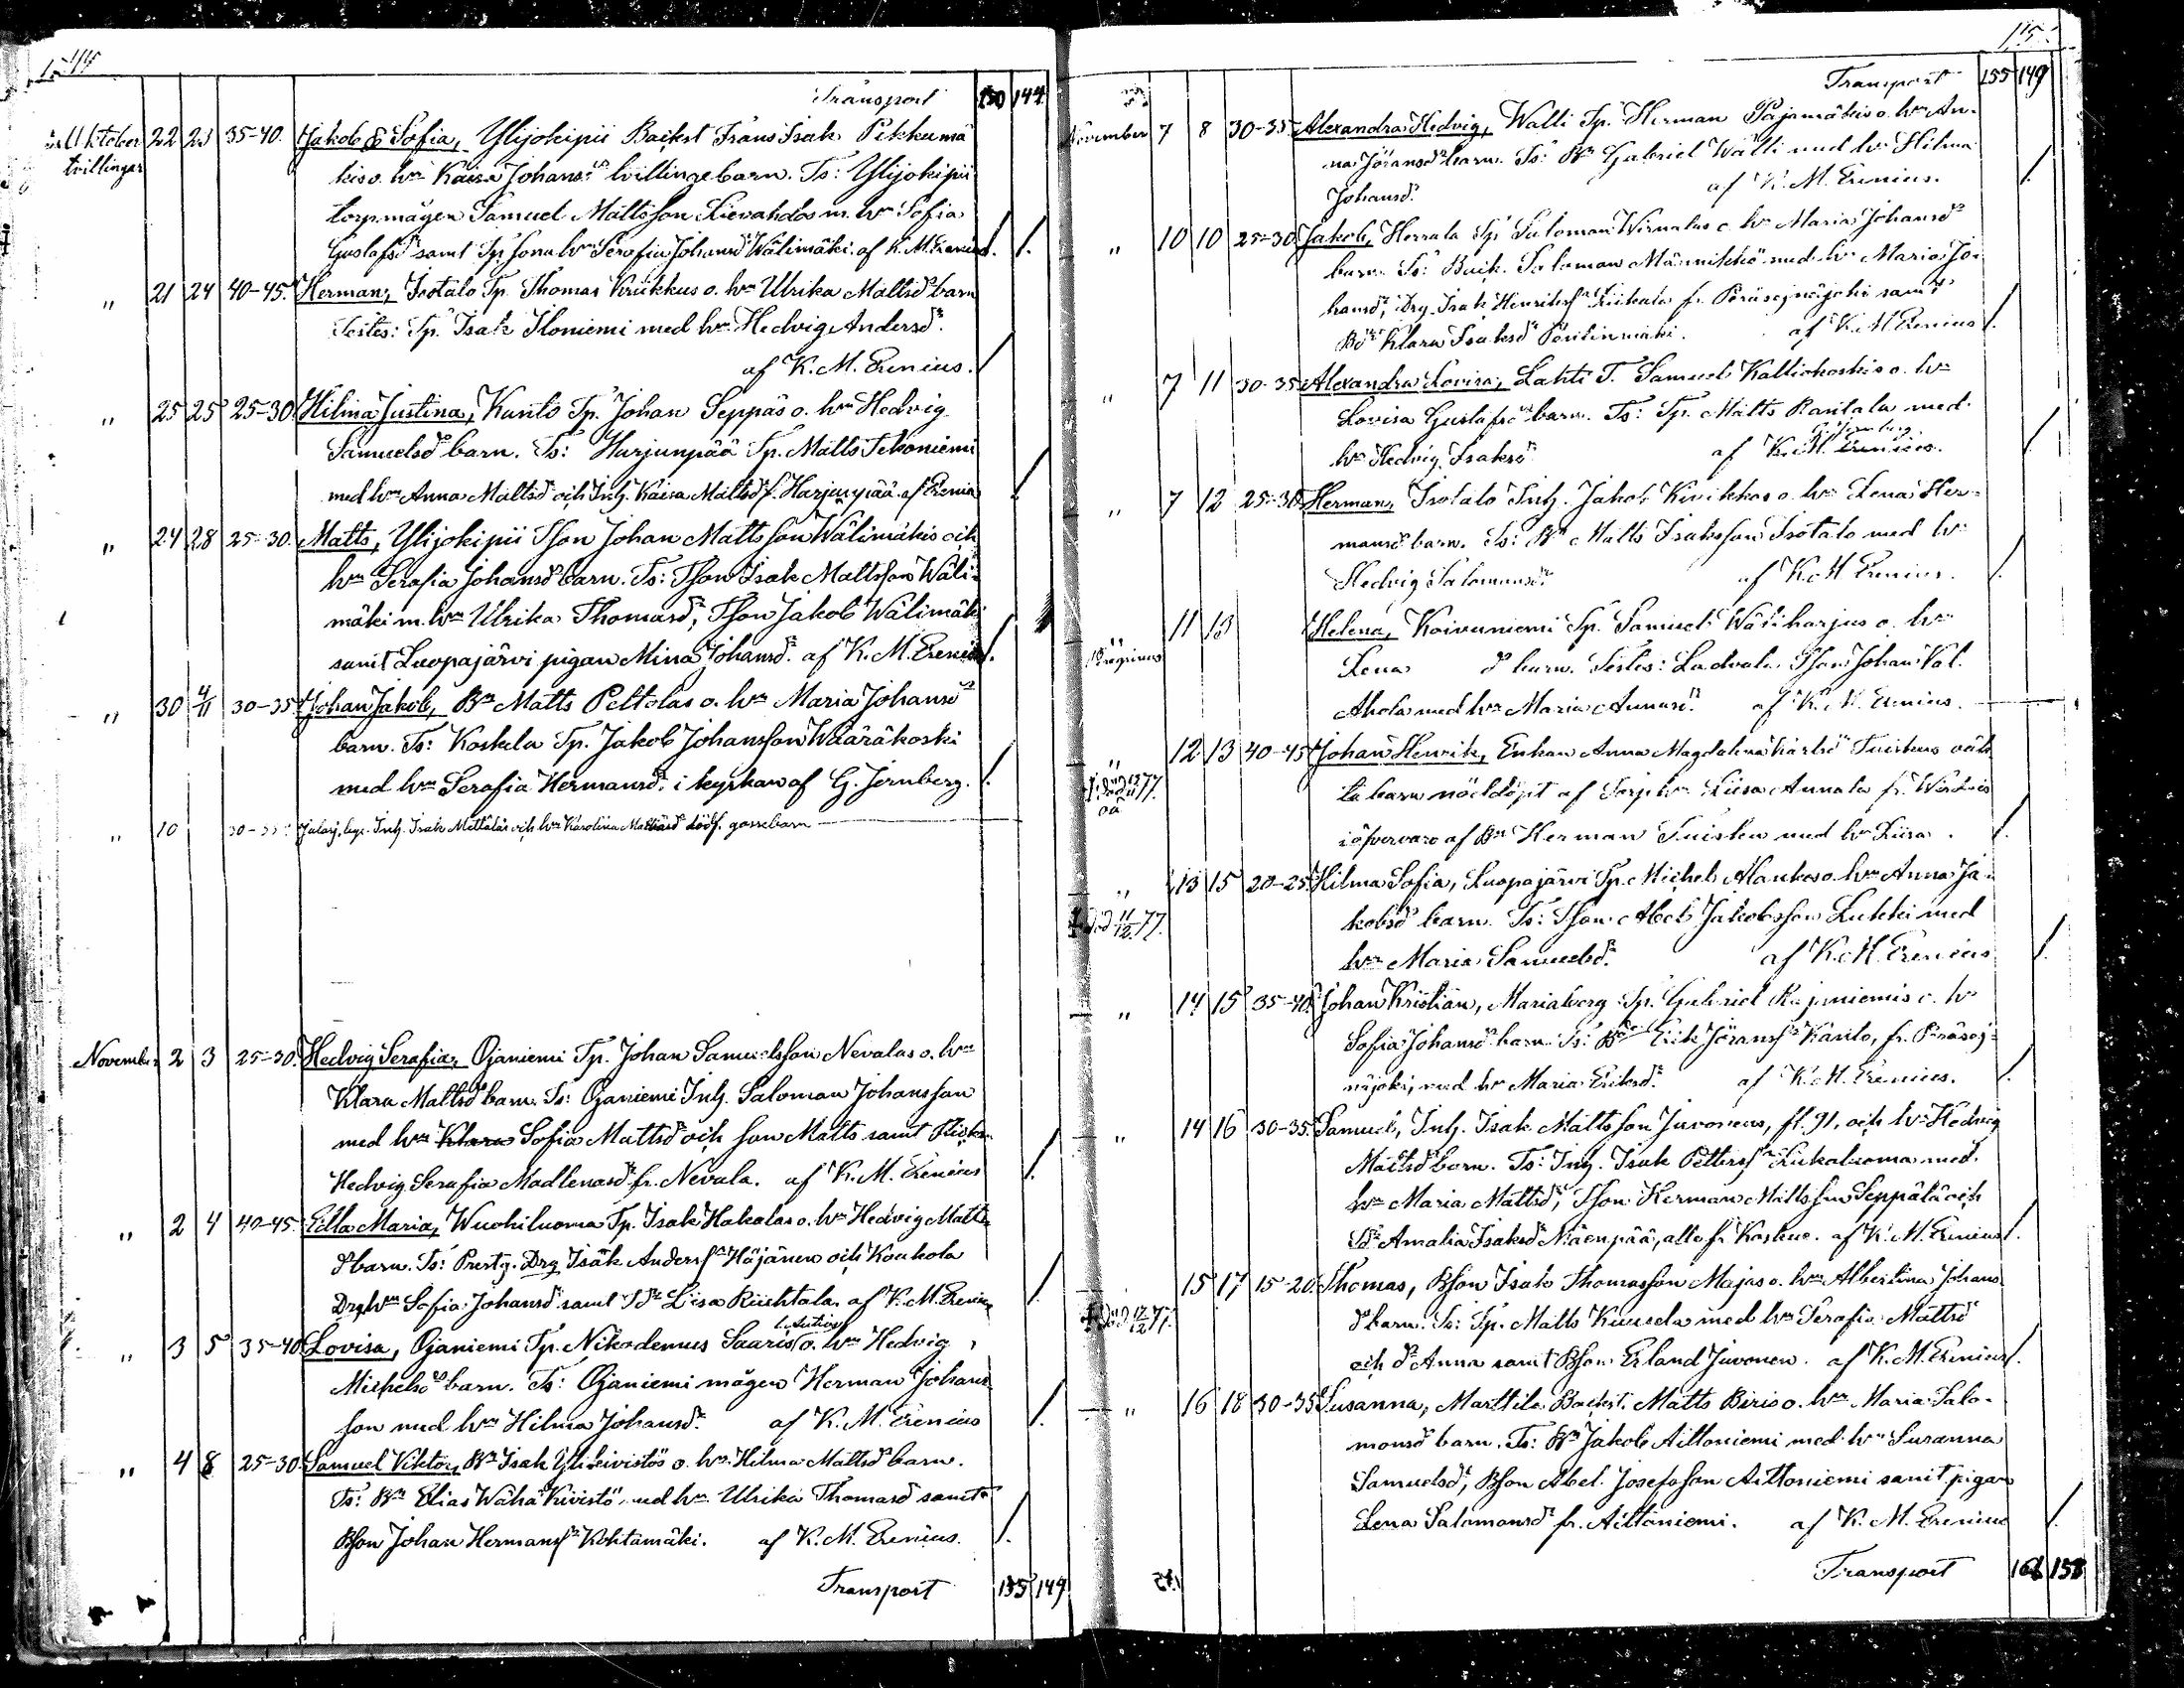 114
Transport 150 144
Oktober 22 23 35-40. Jakob & Sofia, Ylijokipii Backst Frans Isak Pikkumä
tvillingar
kis o. hn Kaisa Johansdr tvillingebarn. Ts: Ylijokipii
torp.mågen Samuel Mattsson Lievahdos m. hn Sofia
Gustafsdr samt Tp. sonahn Serafia Johansdr Wälimäki. af K. M. Erenius
" 21 24 40-45. Herman, Isotalo Tp. Thomas Kriikkus o. hn Ulrika Mattsdr barn
Testes: Tp. Isak Iloniemi med hn Hedvig Andersdr.
af K. M. Erenius.
" 25 25 25-30 Hilma Justina, Kanto Tp. Johan Seppäs o. hn Hedvig
Samuelsdr barn. Ts: Harjunpää Tp. Matts Tekoniemi
med hn Anna Mattsdr och Inh. Kaisa Mattsdr f. Harjunpää. af Erenius
" 24 28 25-30. Matts, Ylijokipii Tson Johan Mattsson Wälimäkis och
hn Serafia Johansdr barn. Ts: Tson Isak Mattsson Wäli-
mäki m. hn Ulrika Thomasdr, Tson Jakob Wälimäki
samt Luopajärvi pigan Mina Johansdr. af K. M. Erenius.
" 30 4/11 30-35. Johan Jakob, Bn Matts Peltolas o. hn Maria Johansdr
barn. Ts: Koskela Tp. Jakob Johansson Wääräkoski
med hn Serafia Hermansdr. i kyrkan af G. Jernberg.
" 10 30-35. Jalasj. Inh. Isak Mettäläs och hn Karolina Mattsdr dödf. gossebarn
November 2 3 25-30. Hedvig Serafia, Ojaniemi Tp. Johan Samuelsson Nevalas o. hn
Klara Mattsdr barn. Ts: Ojaniemi Inh. Saloman Johansson
med hn Klara Sofia Mattsdr och son Matts samt
Hedvig Serafia Madlenasdr fr. Nevala. af K. M. Erenius
" 2 4 40-45. Edla Maria, Wuohiluoma Tp. Isak Hakalas o. hn Hedvig Matts
dr barn. Ts: Prestg. Drg Isak Anderss Häjänen och Koukola
Drghn Sofia Johansdr samt Tdr Lisa Riihtala. af K. M. Erenius
" 3 5 35-40 Lovisa, Ojaniemi Tp. Nikodemus Saaris o. hn Hedvig
Michelsdr barn. Ts: Ojaniemi mågen Herman Johans
son med hn Hilma Johansdr. af K. M. Erenius
" 4 8 25-30. Samuel Viktor, Bn Isak Ylikivistös o. hn Hilma Mattsdr barn.
Ts: Bn Elias Wähä Kivistö med hn Ulrika Thomasdr samt
Bson Johan Hermanss Kohtamäki. af K. M. Erenius.
Transport 155 149
115
Transport 155 149
November 7 8 30-35. Alexandra Hedvig, Walli Tp. Herman Pajumäkis o. hn An-
na Jöransdr barn. Ts: Bn Gabriel Walli med hn Hilma
Johansdr. af K. M. Erenius.
" 10 10 25-30. Jakob, Herrala Tp. Saloman Wirnalas o. hn Maria Johansdr
barn. Ts: Back. Saloman Männikkö med hn Maria Jo-
hansdr, Drg. Isak Henrikss fr. Peräseinäjoki samt
Bdr Klara Isaksdr Pentinmäki. af K. M. Erenius.
" 7 11 30-35 Alexandra Lovisa, Lahti T. Samuel Kalliokoskis o. hn
Lovisa Gustafsdr barn. Ts: Tp. Matts Rantala med
hn Hedvig Isaksdr af K. M. Erenius. G. Jernberg.
" 7 12 25-30 Herman, Isotalo Inh. Jakob Kivikkos o. hn Lena Her-
mansdr barn. Ts: Bn Matts Isaksson Isotalo med hn
Hedvig Salomansdr. af K. M. Erenius.
" 11 13 Helena, Koivuniemi Tp. Samuel Wäliharjus o. hn
Lena dr barn. Testes: Ladvala Tson Johan Val.
Ahola med hn Maria Annasdr. af K. M. Erenius.
" 12 13 40-45 Johan Henrik, Enkan Anna Magdalena Karlsdr Tuiskus oäk
ta barn nöddöpt af Torp.hn Liisa Annala fr.
i öfvervaro af Bn Herman Tuisku med hn Liisa.
" 13 15 20-25. Hilma Sofia, Luopajärvi Tp. Michel Alankos o. hn Anna Ja-
kobsdr barn. Ts: Tson Abel Jakobsson Lukki med
hn Maria Samuelsdr. af K. M. Erenius
" 14 15 35-40. Johan Kristian, Mariaberg Tp. Gabriel Rajaniemis o. hn
Sofia Johansdr barn. Ts: Erik Jöranss Kanto, fr. Peräsej-
näjoki, med hn Maria Eriksdr. af K. M. Erenius.
" 14 16 30-35. Samuel, Inh. Isak Mattsson Juvonens, fl. 91, och hn Hedvig
Mattsdr barn. Ts: Inh. Isak Petterss Liikaluoma med
hn Maria Mattsdr, Tson Herman Mattsson Seppälä och
Tdr Amalia Isaksdr Mäenpää, alla fr. Koskue. af K. M. Erenius.
15 17 15-20. Thomas, Bson Isak Thomasson Majas o. hn Albertina Johans
dr barn. Ts: Tp. Matts Kuusela med hn Serafia Mattsdr
och dr Anna samt Bson Erland Juvonen. af K. M. Erenius.
" 16 18 30-35 Susanna, Marttila Backst. Matts Biris o. hn Maria Salo-
monsdr barn. Ts: Bn Jakob Aittoniemi med hn Susanna
Samuelsdr, Bson Abel Josefsson Aittoniemi samt pigan
Lena Salamonsdr fr. Aittoniemi. af K. M. Erenius
Transport 158